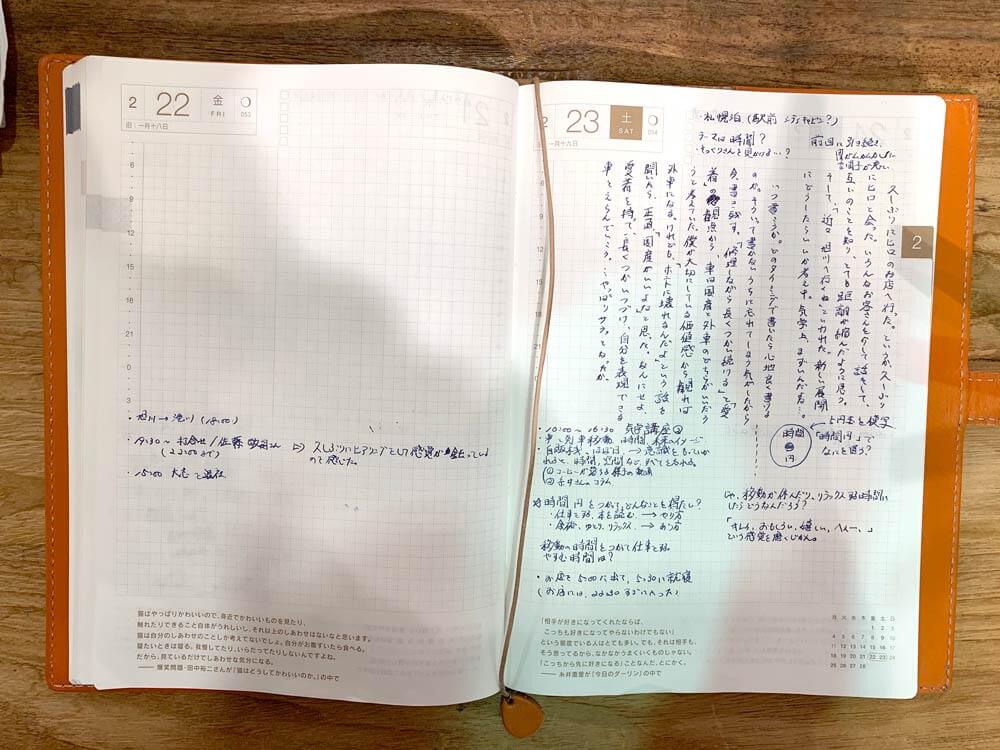 2 22 金 FRI 053
旧：一月十八日
6
9
12
15
18
21
0
3
・旭川→滝川 (18:00)
・19:30〜 打合せ/佐藤
(22:00まで)
・15:00 大志と
猫はやっぱりかわいいので、身近でかわいいものを見たり、
触れたりできること自体がうれしいし、それ以上のしあわせはないなと思います。
猫は自分のしあわせのことしか考えてないでしょ。自分がお腹すいたら食べる。
寝たいときは寝る。我慢してたり、いらだってたりしないんですよね。
だから、見ているだけでしあわせな気分になる。
—— 爆笑問題・田中裕二さんが『猫はどうしてかわいいのか。』の中で
2 23 土 SAT 054
一月十九日
・札幌泊 (駅前 シティキャビン？)
テーマは時間？
・そっくりさんを見かける…？
前回に引き続き、
調子が悪い
2
久しぶりにヒロのお店へ行った。というか、久しぶり
にヒロと会った。いろんなお客さんを介して話をして、
互いのことを知り、とても距離が縮んだように思う。
そして、「近々旭川へ行くね」といわれた。新しい展開
にどうしたらいいか考え中。気学上、まずいんだな…。
いつ書こうか。どのタイミングで書いたら心地良く書ける
のか。そういって書かないうちに忘れてしまう気がしたから
今、書き残す。「修理しながら長くつかい続ける」と「愛
着」の観点から車は国産と外車のどちらがいいだろ
うと考えていた。僕が大切にしている価値感から観れば
外車になる。けれども、「ホントに壊れるんだよ」という話を
聞いたら、正直「国産がいいよな」と思った。なんにせよ、
愛着を持って、長くつかいつづけ、自分を表現できる
車をえらんでいこう…。やっぱりサーブとなったか。
・10:00〜16:30 気学講座②
・車→列車移動 時間、未来のイメージ
①コーヒーが
②糸井さんのコラム
時間円をつかって、どんなことを得たい？
・仕事をする、本を読む → やり方
・ゆとり、リラックス → あり方
移動の時間をつかって仕事をする。
やすむ時間は？
・お店を5:00に出て、5:30に就寝
(お店には、22:30すぎに入った)
5円本を検
時間
円
「時間円」で
なにを買う？
じゃ、移動が休んだり、リラックスする時間に
したらどうなんだろう？
「すてき、おもしろい、嬉しい、へえー、」
という感覚を磨くじかん。
「相手が好きになってくれたならば、
こっちも好きになってやらないわけでもない」
という態度でいる人はとても多い。でも、それは相手も、
そう思ってるから、なかなかうまくいくものじゃない。
「こっちから先に好きになる」ことなんだ、とにかく。
—— 糸井重里が『今日のダーリン』の中で
月 火 水 木 金 土 日
1 2 3
4 5 6 7 8 9 10
11 12 13 14 15 16 17
18 19 20 21 22 23 24
25 26 27 28